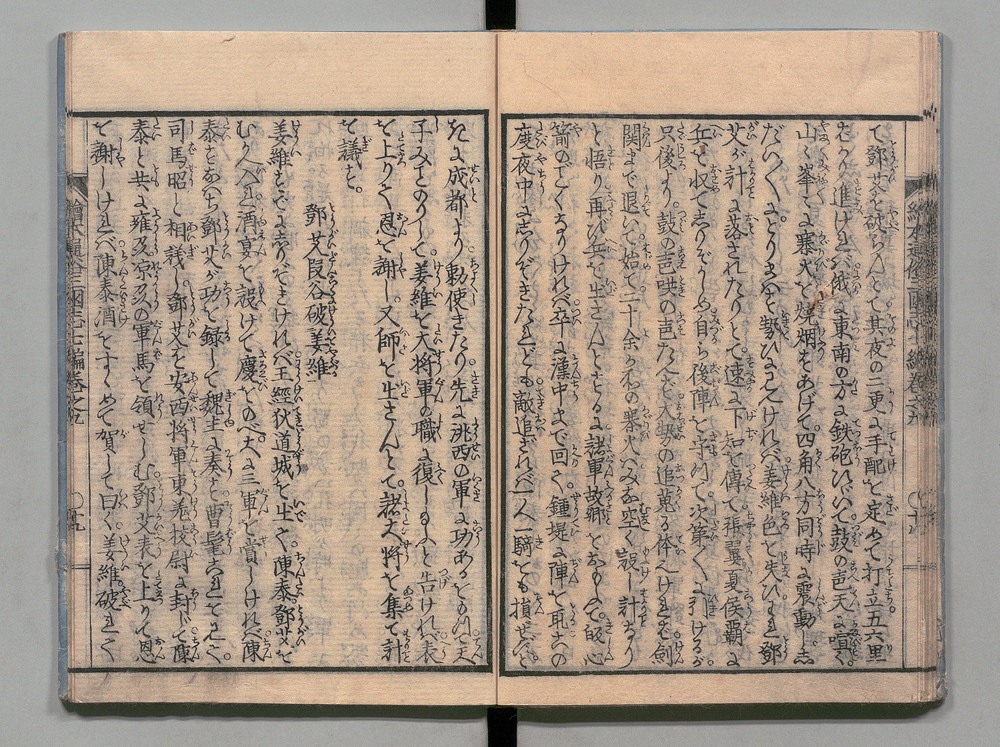 て鄧艾を破らんとて其夜の二更に手配を定めて打立五六里
も進ければ俄に東南の方に鉄砲ひゞいて鼓の声天に喧く
山々峯々に寨火を焼烟をあげて四角八方同時に震動し
だいたくとりまく勢ひに見へければ姜維色を失ひ鄧
艾が計に落されたりとて速に下知を傳て張翼夏侯覇に
兵を収てしりぞかしめ自ら後陣を守て次第々々に引けるが
只後より鼓の声哄の声たへず大勢の追蒐る体なれば劔
関まで退いて始て二十余ケ所の寨火みな空く設し計なり
と悟り再び兵を出さんとするに諸軍故郷をおもふて皈心
箭のごとくなりければ卒に漢中まで回て鍾堤に陣を取この
度夜中にしりぞきたれども敵追ざれば一人一騎をも損ぜず
左に成都より勅使きたり先に洮西の軍に功あるをもつて天
子みことのりして姜維を大将軍の職に復し給ふと告けれバ表
を上りて恩を謝し又師を出さんとて諸大将を集て計
を議す
鄧艾段谷破姜維
姜維すでにしりぞきければ王経狄道城を出て陳泰鄧艾を
むかへ入れ酒宴を設けて慶をのべ大に三軍を賞しければ陳
泰すなはち鄧艾が功を録して魏主に奏す曹髦これをきゝて
司馬昭と相議し鄧艾を安西将軍東羌校尉に封じて陳
泰と共に雍凉の軍馬を領せしむ鄧艾表を上りて恩
を謝しければ陳泰酒をすゝめて賀して曰く姜維破れて